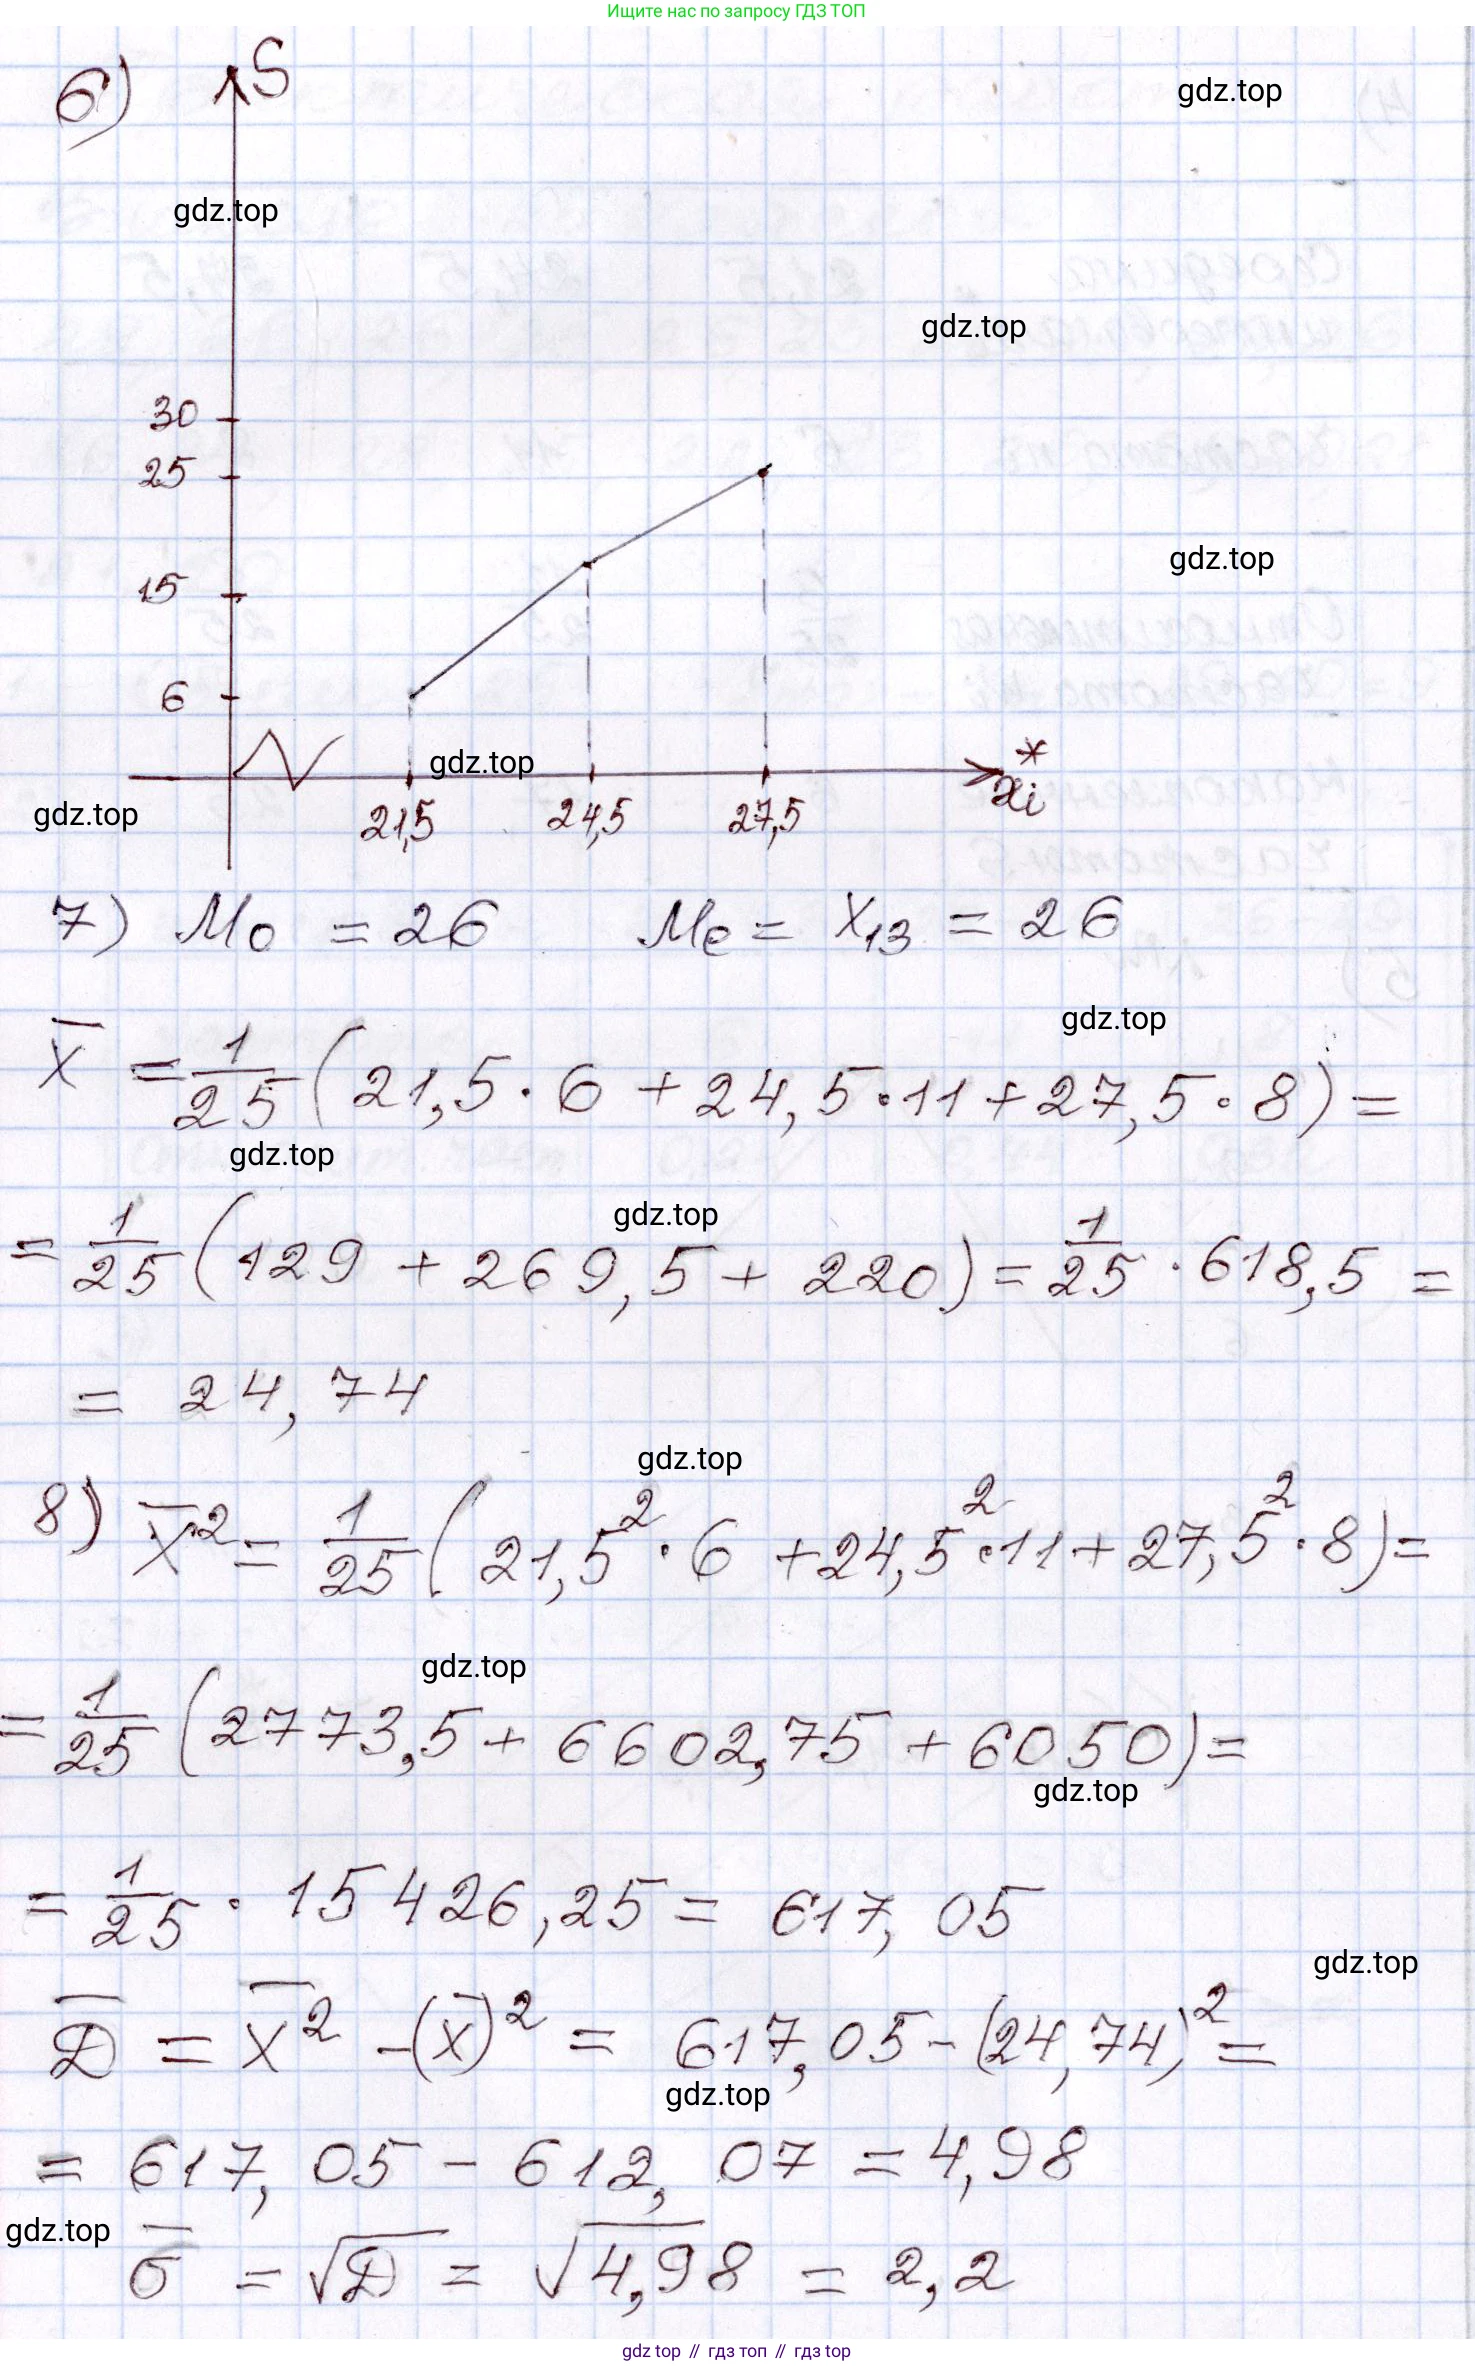 Ищите нас по запросу ГДЗ ТОП
6) S
gdz.top
gdz.top
gdz.top
30
25
gdz.top
15
6
gdz.top
x*i
gdz.top
21,5 24,5 27,5
7) Mo = 26 Me = X₁₃ = 26
gdz.top
x̄ = 1/25 (21,5 · 6 + 24,5 · 11 + 27,5 · 8) =
gdz.top
gdz.top
= 1/25 (129 + 269,5 + 220) = 1/25 · 618,5 =
= 24,74
gdz.top
8) x̄² = 1/25 (21,5² · 6 + 24,5² · 11 + 27,5² · 8) =
gdz.top
= 1/25 (2773,5 + 6602,75 + 6050) =
gdz.top
= 1/25 · 15426,25 = 617,05
gdz.top
D̄ = x̄² - (x̄)² = 617,05 - (24,74)² =
gdz.top
= 617,05 - 612,07 = 4,98
gdz.top
σ̄ = √D = √4,98 = 2,2
gdz top // гдз топ // гдз top